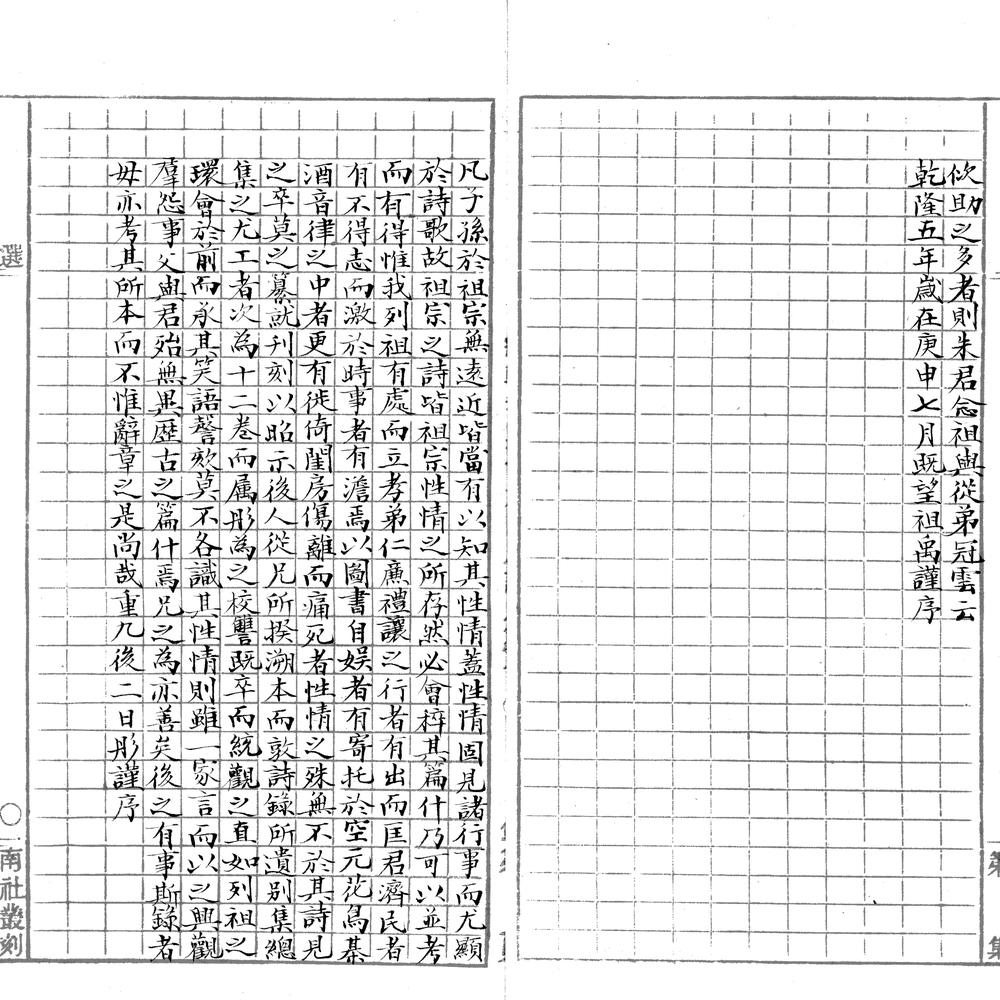 佽助之多者則朱君念祖與從弟冠雲云
乾隆五年歲在庚申七月既望祖禹謹序
凡子孫於祖宗無遠近皆當有以知其性情蓋性情固見諸行事而尤顯
於詩歌故祖宗之詩皆祖宗性情之所存然必會稡其篇什乃可以並考
而有得惟我列祖有處而立孝弟仁廉禮讓之行者有出而匡君濟民者
有不得志而激於時事者有澹焉以圖書自娛者有寄托於空元花鳥棊
酒音律之中者更有徙倚閨房傷離而痛死者性情之殊無不於其詩見
之卒莫之纂就刊刻以昭示後人從兄所揆溯本而敦詩錄所遺別集總
集之尤工者次為十二卷而属彤為之校讐既卒而統觀之直如列祖之
環會於前而承其笑語謦欬莫不各識其性情則雖一家言而以之興觀
羣怨事父與君殆無異歷古之篇什焉兄之為亦善矣後之有事斯錄者
毋亦考其所本而不惟辭章之是尚哉重九後二日彤謹序
選
〇南社叢刻